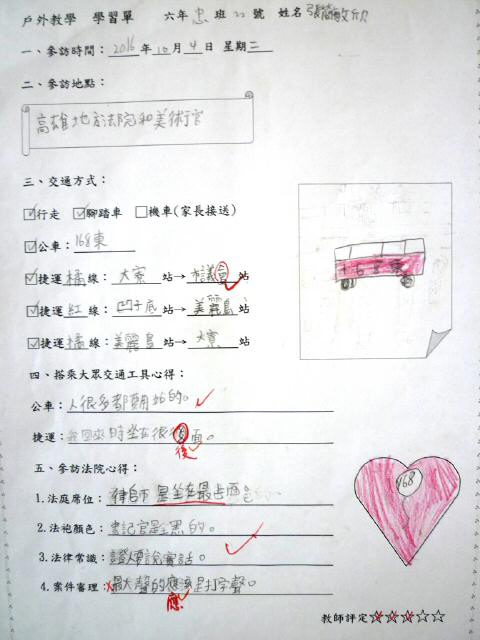 戶外教學 學習單 六年忠班22號 姓名張簡敏欣
一、參訪時間：2016年10月4日 星期二
二、參訪地點：
高雄地方法院和美術官
三、交通方式：
行走 腳踏車 機車(家長接送)
公車：168東
捷運橘線：大寮站→市議會站
168東
捷運紅線：凹子底站→美麗島站
捷運橘線：美麗島站→大寮站
四、搭乘大眾交通工具心得：
公車：人很多都要用站的。
捷運：我回來時坐在很後面。
後
五、參訪法院心得：
168
1.法庭席位：律師是坐在最占面
2.法袍顏色：書記官是黑的。
3.法律常識：證人要說實話。
4.案件審理：最大聲的應該是打字聲。
應
教師評定☆☆☆☆☆